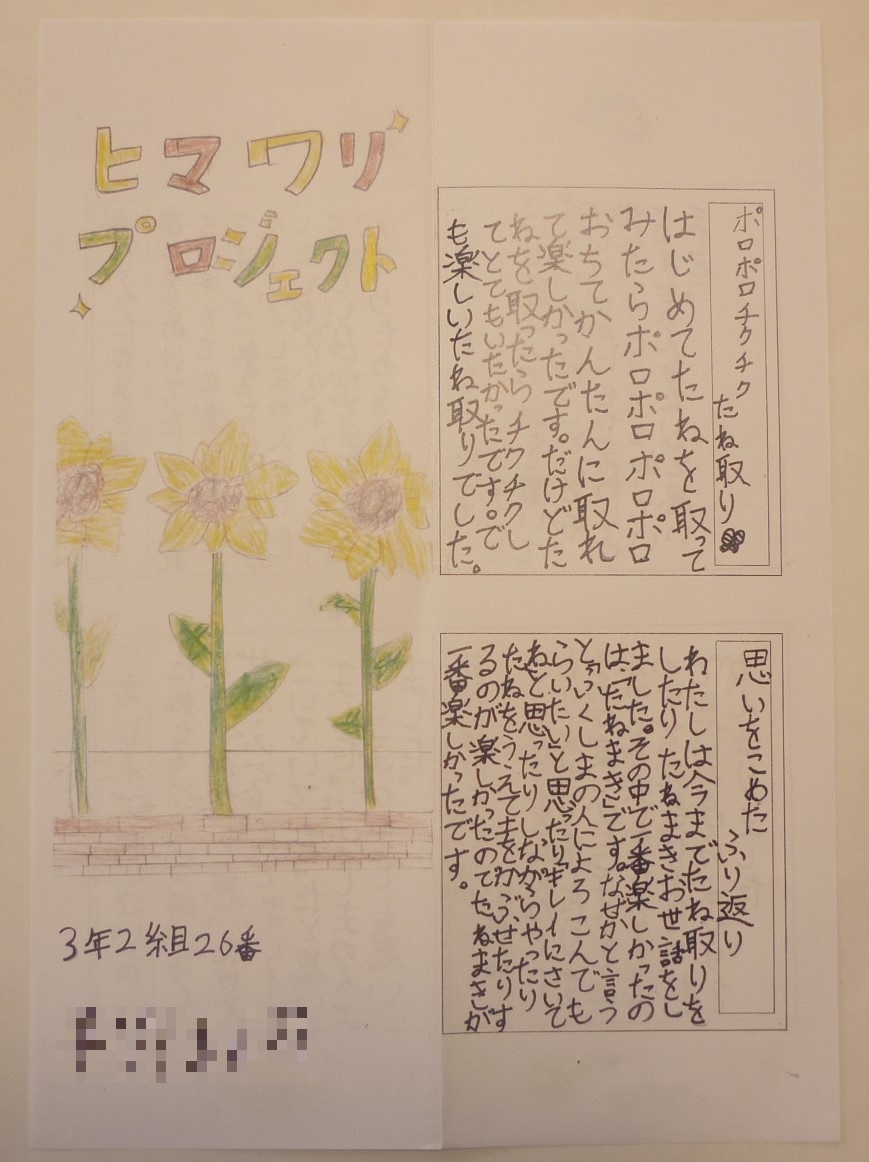 ヒマワリ
プロジェクト
3年2組26番
ポロポロチクチク
たね取り
はじめてたねを取って
みたらポロポロポロポロ
おちてかんたんに取れ
て楽しかったです。だけどた
ねを取ったらチクチクし
てとてもいたかったです。で
も楽しいたね取りでした。
思いをこめた
ふり返り
わたしは今までたね取りを
したりたねまきお世話をし
ました。その中で一番楽しかったの
は、「たねまき」です。なぜかと言う
と、ふくしまの人によろこんでも
らいたい」と思ったり「キレイにさいて
ね」と思ったりしながらやったり
たねをうえて土をかぶせたりす
るのが楽しかったのでたねまきが
一番楽しかったです。